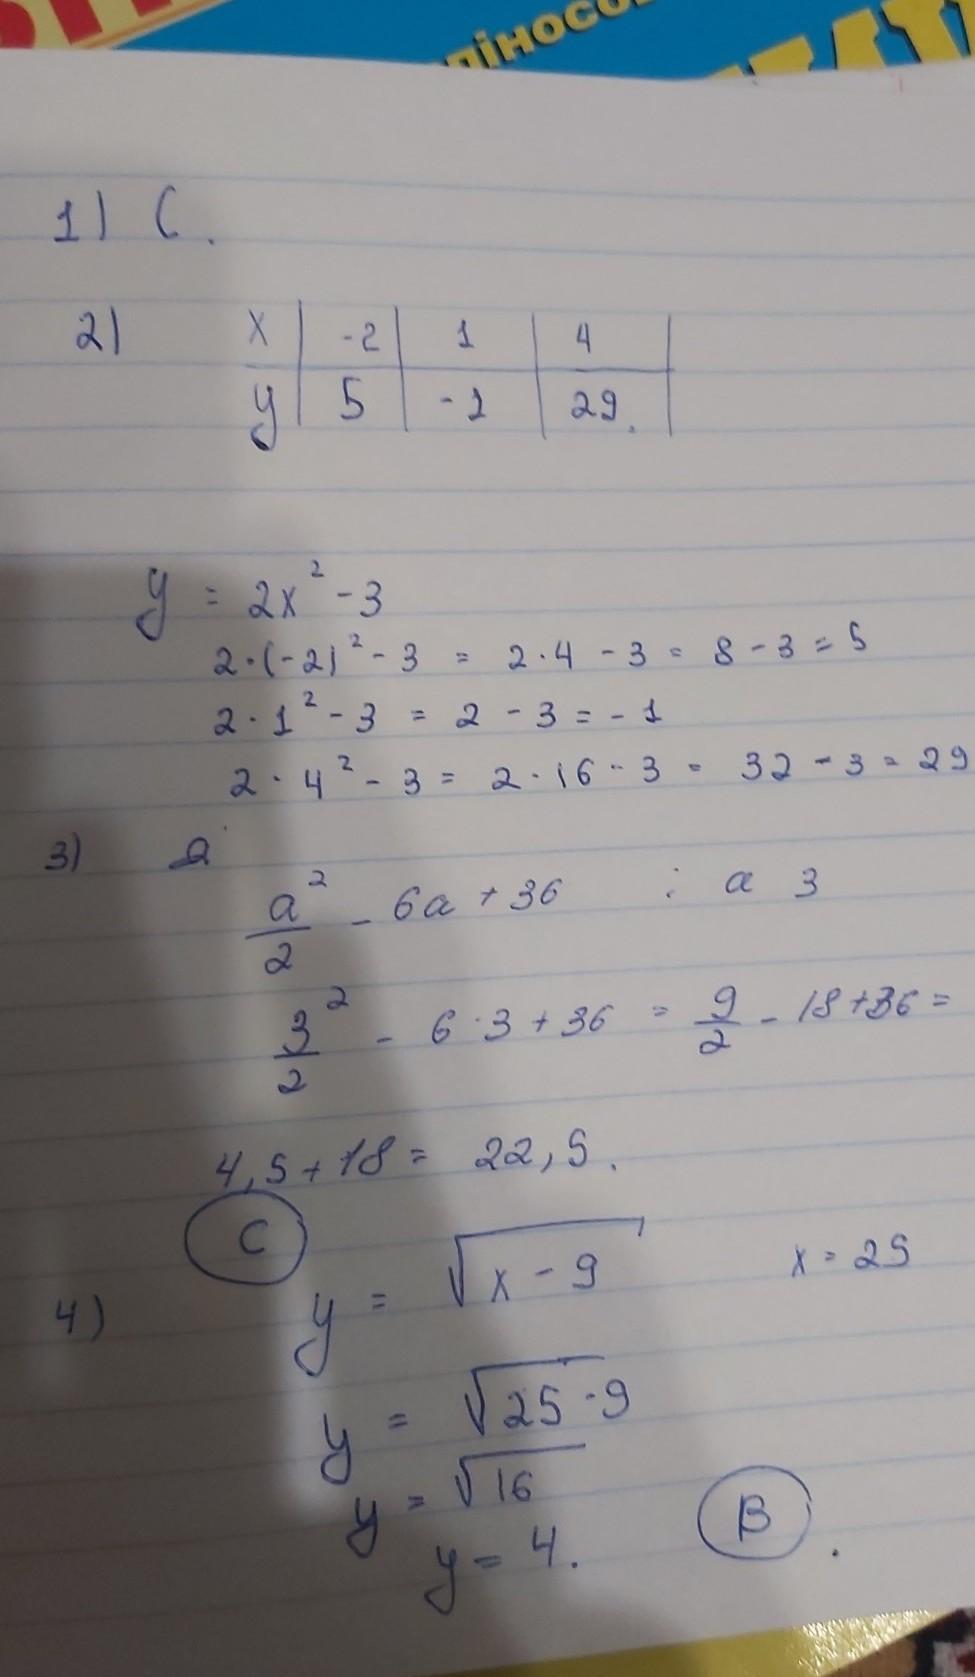 піносо
1) C.
2) x | -2 | 1 | 4 |
y | 5 | -1 | 29. |
y = 2x² - 3
2·(-2)² - 3 = 2·4 - 3 = 8 - 3 = 5
2·1² - 3 = 2 - 3 = -1
2·4² - 3 = 2·16 - 3 = 32 - 3 = 29
3) a
a²/2 - 6a + 36 : a 3
3²/2 - 6·3 + 36 = 9/2 - 18 + 36 =
4,5 + 18 = 22,5.
C
4) y = √(x - 9) x = 25
y = √25 - 9
y = √16
y = 4. B.